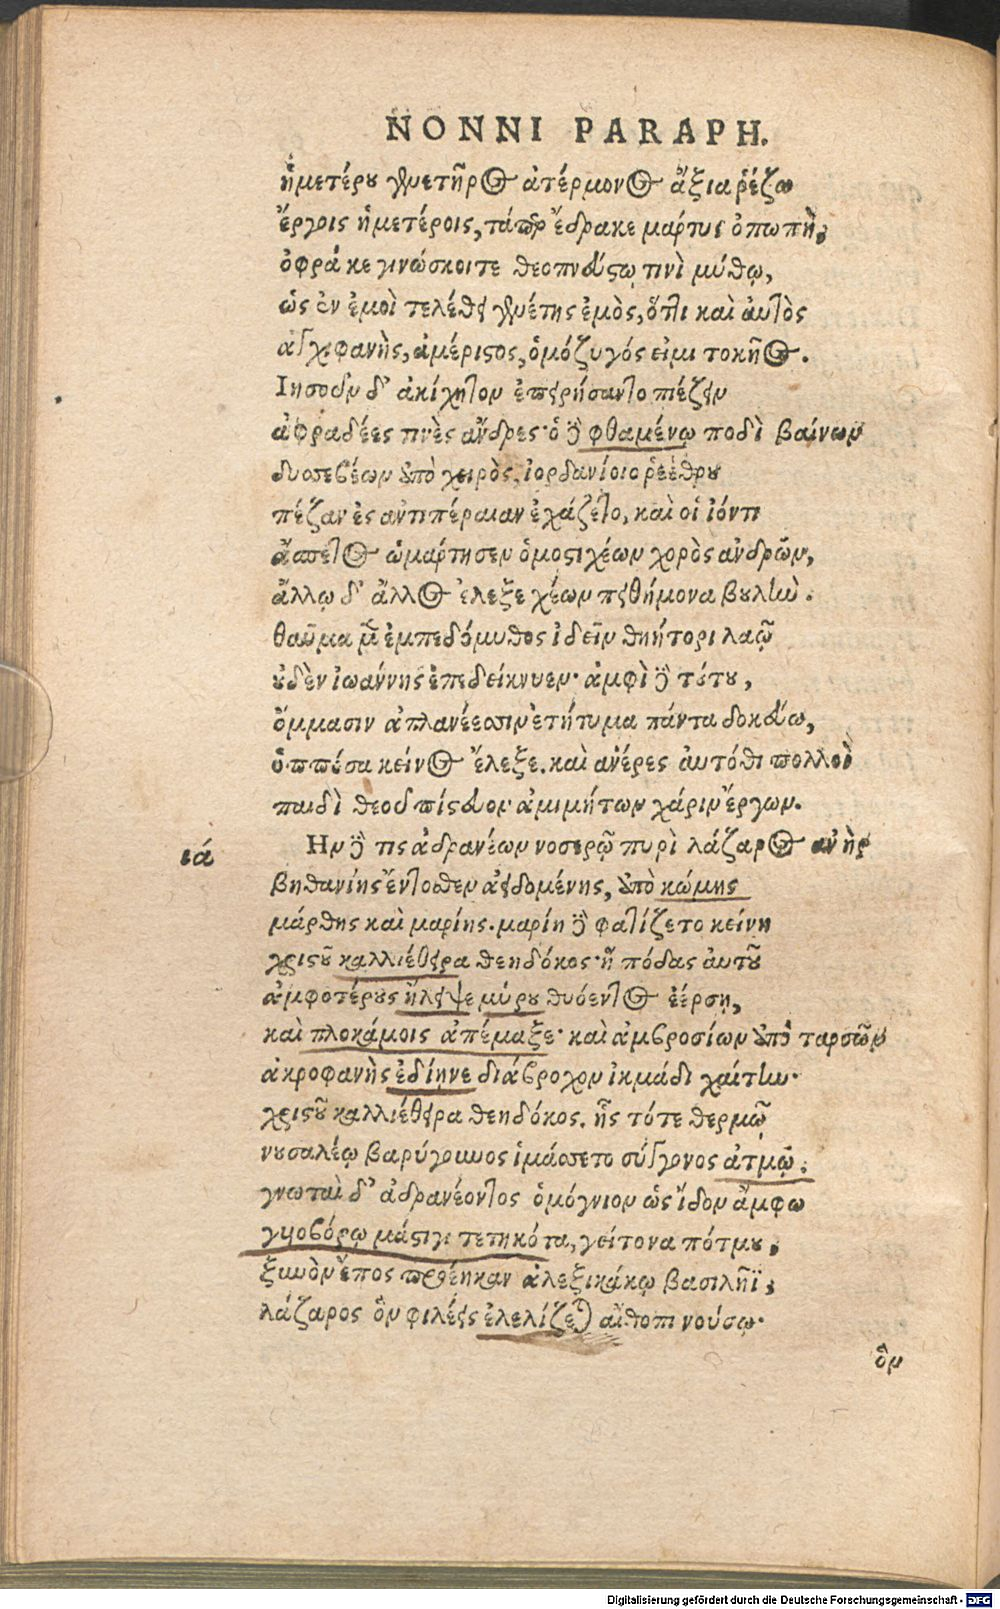 NONNI PARAPH.
ἡμετέρου γενετῆρος ἀτέρμονος ἄξια ῥέζω
ἔργοις ἡμετέροις, τάπερ ἔδρακε μάρτυς ὀπωπὴ,
ὀφρά κε γινώσκοιτε θεοπνεύστῳ τινὶ μύθῳ,
ὡς ἐν ἐμοὶ τελέθει γενέτης ἐμὸς, ὅττι καὶ αὐτὸς
ἀγχιφανὴς, ἀμέριστος, ὁμόζυγός εἰμι τοκῆος.
Ιησοῦν δ' ἀκίχητον ἐπειρήσαντο πιέζειν
ἀφραδέες τινὲς ἄνδρες· ὁ δὲ φθαμένῳ ποδὶ βαίνων
δυσσεβέων ὑπὸ χειρὸς, ἰορδανίοιο ῥεέθρου
πέζαν ἐς ἀντιπέραιαν ἐχάζετο, καὶ οἱ ἰόντι
ἄσπετος ὡμάρτησεν ὁμοστιχέων χορὸς ἀνδρῶν,
ἄλλῳ δ' ἄλλος ἔλεξε χέων πειθήμονα βουλὴν.
θαῦμα μὲν ἐμπεδόμυθος ἰδεῖν θηήτορι λαῷ
οὐδὲν ἰωάννης ἐπεδείκνυεν· ἀμφὶ δὲ τούτου,
ὄμμασιν ἀπλανέεσσιν ἐτήτυμα πάντα δοκεύω,
ὁππόσα κεῖνος ἔλεξε. καὶ ἀνέρες αὐτόθι πολλοὶ
παιδὶ θεοῦ πίστευον ἀμιμήτων χάριν ἔργων.
ιά Ην δέ τις ἀδρανέων νοσερῷ πυρὶ λάζαρος ἀνὴρ
βηθανίης ἔντοσθεν ἀειδομένης, ὑπὸ κώμης
μάρθης καὶ μαρίης. μαρίη δὲ φατίζετο κείνη
χριστοῦ καλλιέθειρα θεηδόκος· ἣ πόδας αὐτοῦ
ἀμφοτέρους ἤλειψε μύρου θυόεντος ἐέρσῃ,
καὶ πλοκάμοις ἀπέμαξε· καὶ ἀμβροσίων ὑπὸ ταρσῶν
ἀκροφανὴς ἐδίηνε διάβροχον ἰκμάδι χαίτην·
χριστοῦ καλλιέθειρα θεηδόκος. ἧς τότε θερμῷ
νουσαλέῳ βαρύγουνος ἱμάσσετο σύγγονος ἀτμῷ.
γνωταὶ δ' ἀδρανέοντος ὁμόγνιον ὡς ἴδον ἄμφω
γυιοβόρῳ μάστιγι τετηκότα, γείτονα πότμου,
ξυνὸν ἔπος προέηκαν ἀλεξικάκῳ βασιλῆϊ,
λάζαρος ὃν φιλέεις ἐλελίζεται αἴθοπι νούσῳ·
ὃν
Digitalisierung gefördert durch die Deutsche Forschungsgemeinschaft - DFG